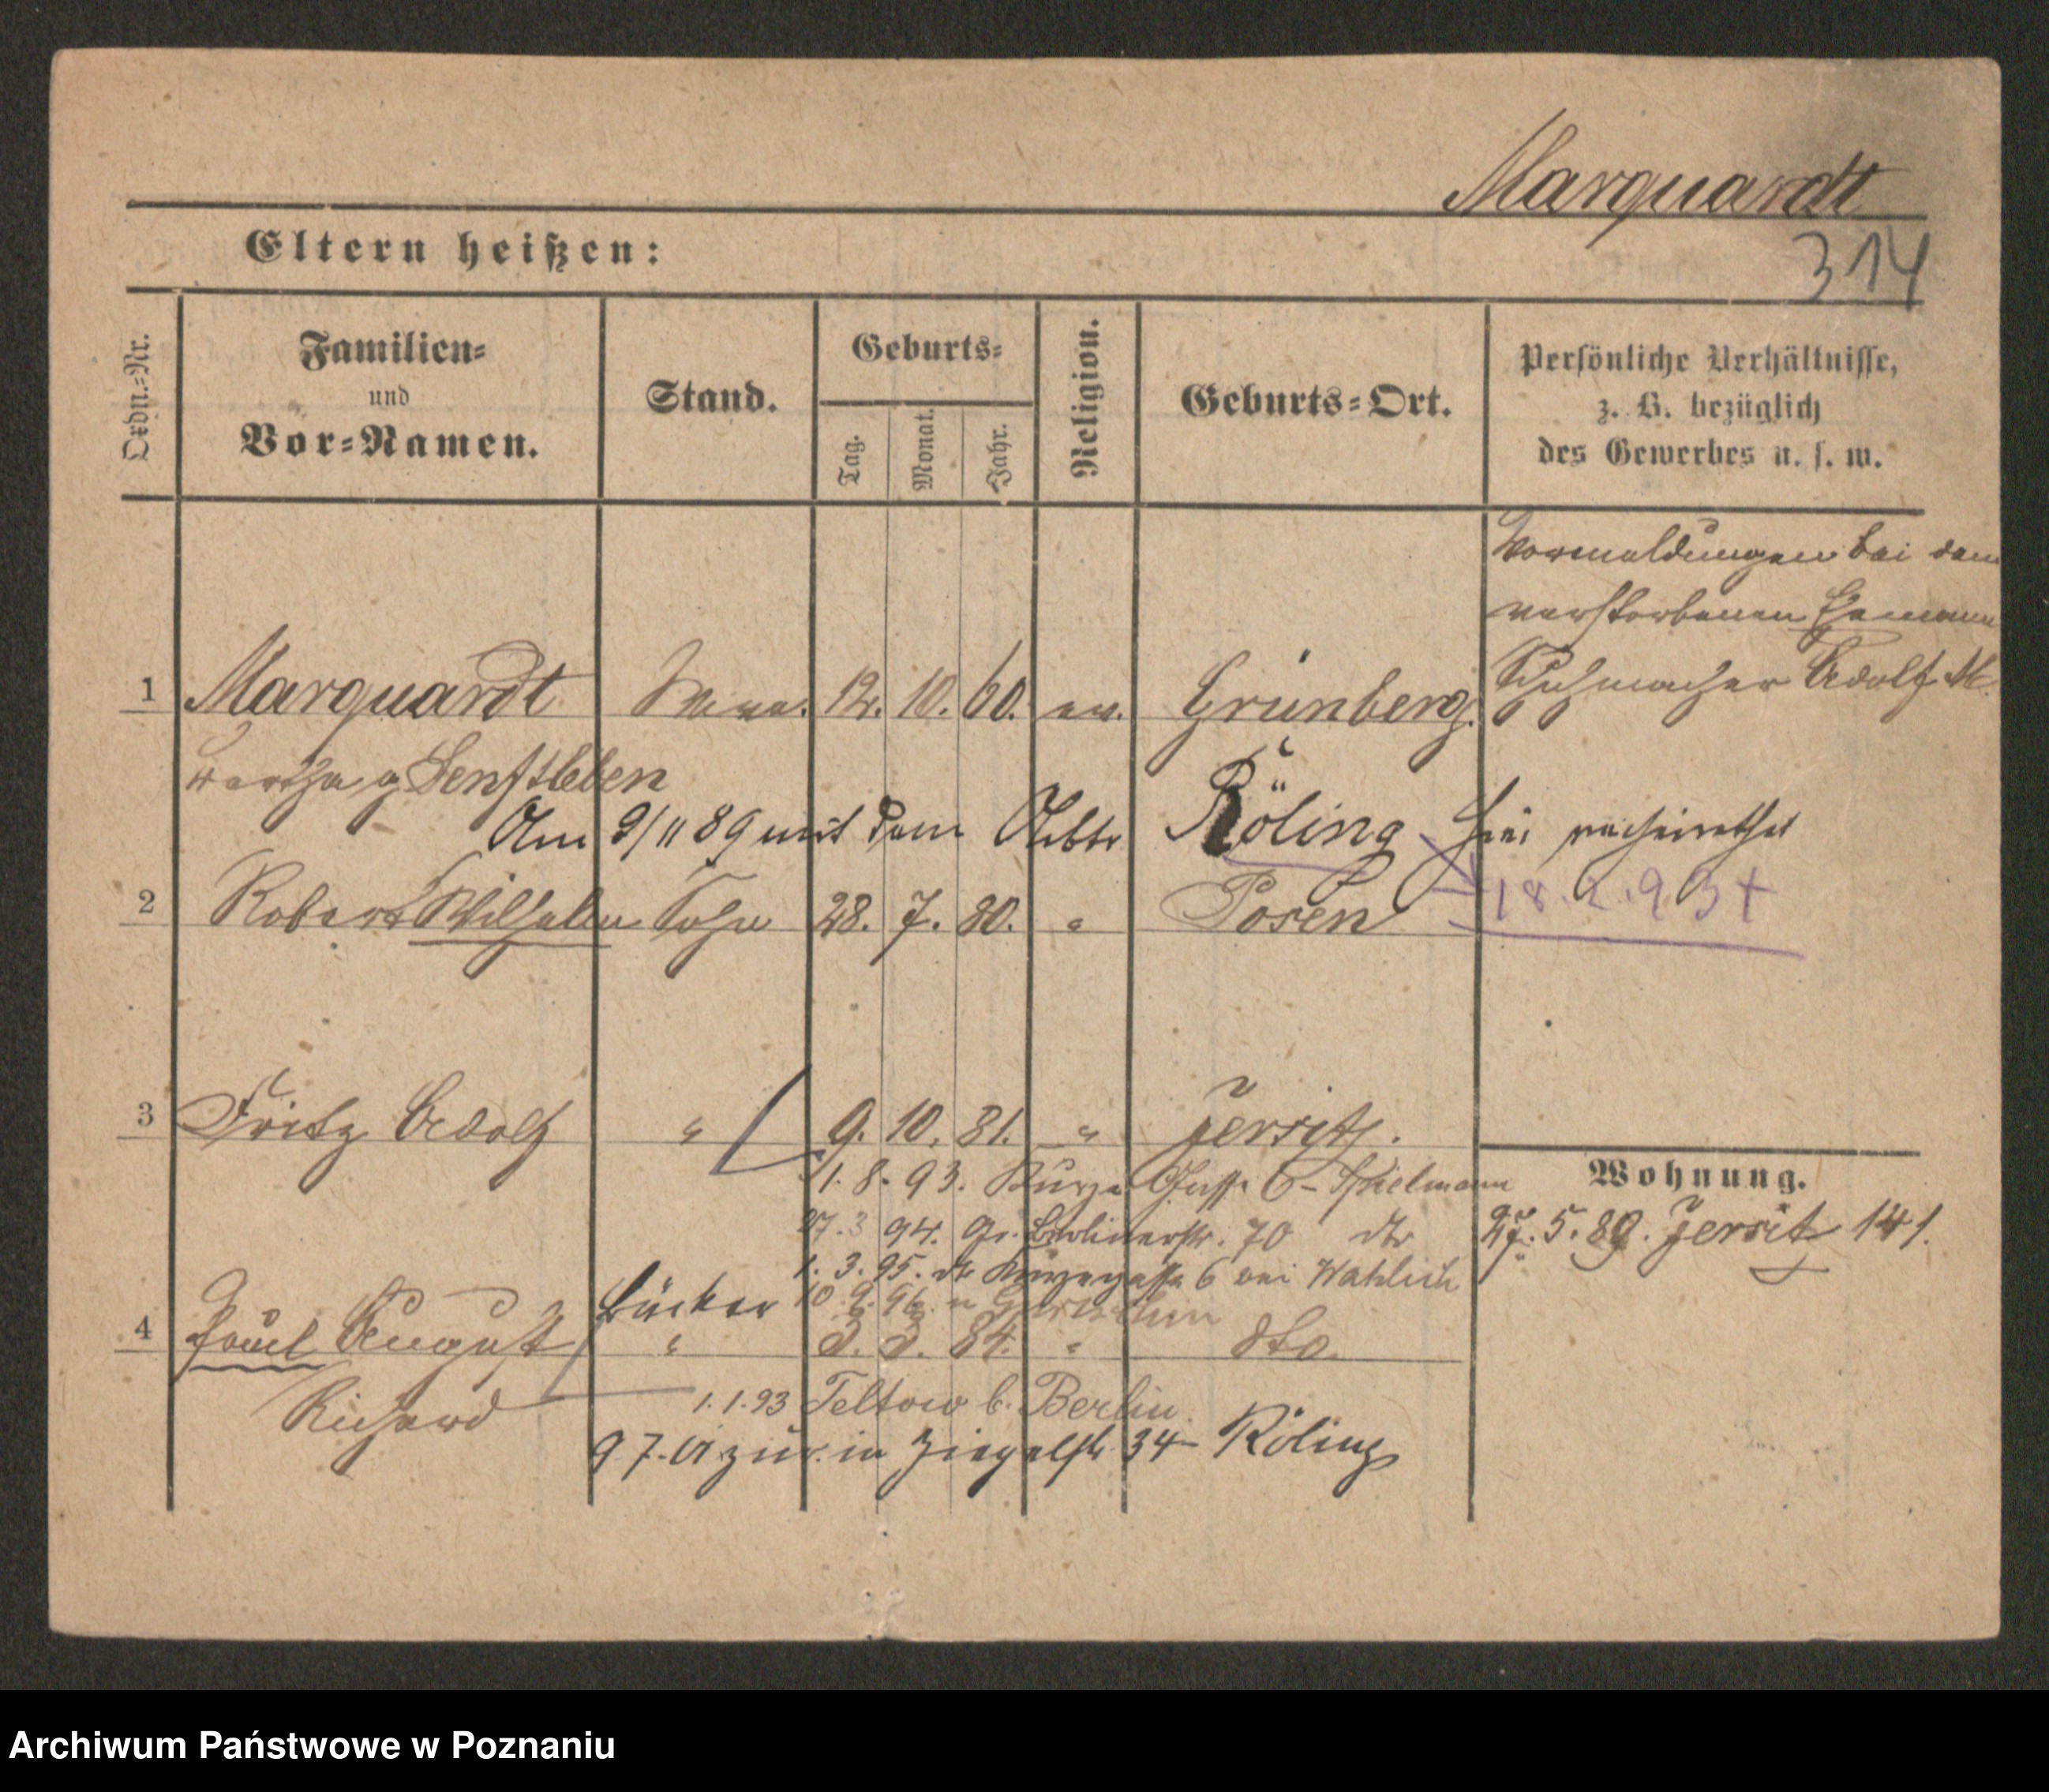 Marquardt
314
Eltern heißen:
Ordn.-Nr.
Familien-
und
Vor-Namen.
Stand.
Geburts-
Tag.
Monat.
Jahr.
Religion.
Geburts-Ort.
Persönliche Verhältnisse,
z. B. bezüglich
des Gewerbes u. s. w.
Vormeldungen bei dem
verstorbenen Ehemann
Schuhmacher Adolf M.
1 Marquardt Wwe. 12. 10. 60. ev. Grünberg.
Bertha g Senftleben
Am 9/11 89 mit dem Arbtr Röling hier verheirathet
2 Robert Wilhelm Sohn 28. 7. 80. " Posen
18.2.93 +
3 Fritz Adolf " 9. 10. 81. " Jersitz.
1. 8. 93. Kurze Gasse 6 - Spielmann
27. 3 94. Gr. Berlinerstr. 70 dto
1. 3. 95. Kurzegasse 6 bei Wahlich
10 9. 96. n
Wohnung.
27. 5. 89. Jersitz 141.
Bäcker
4 Paul August " 3. 3. 84. " dto.
Richard
1. 1. 93 Teltow b. Berlin
9 7. 01 zur. in Ziegelstr 34 - Röling
Archiwum Państwowe w Poznaniu